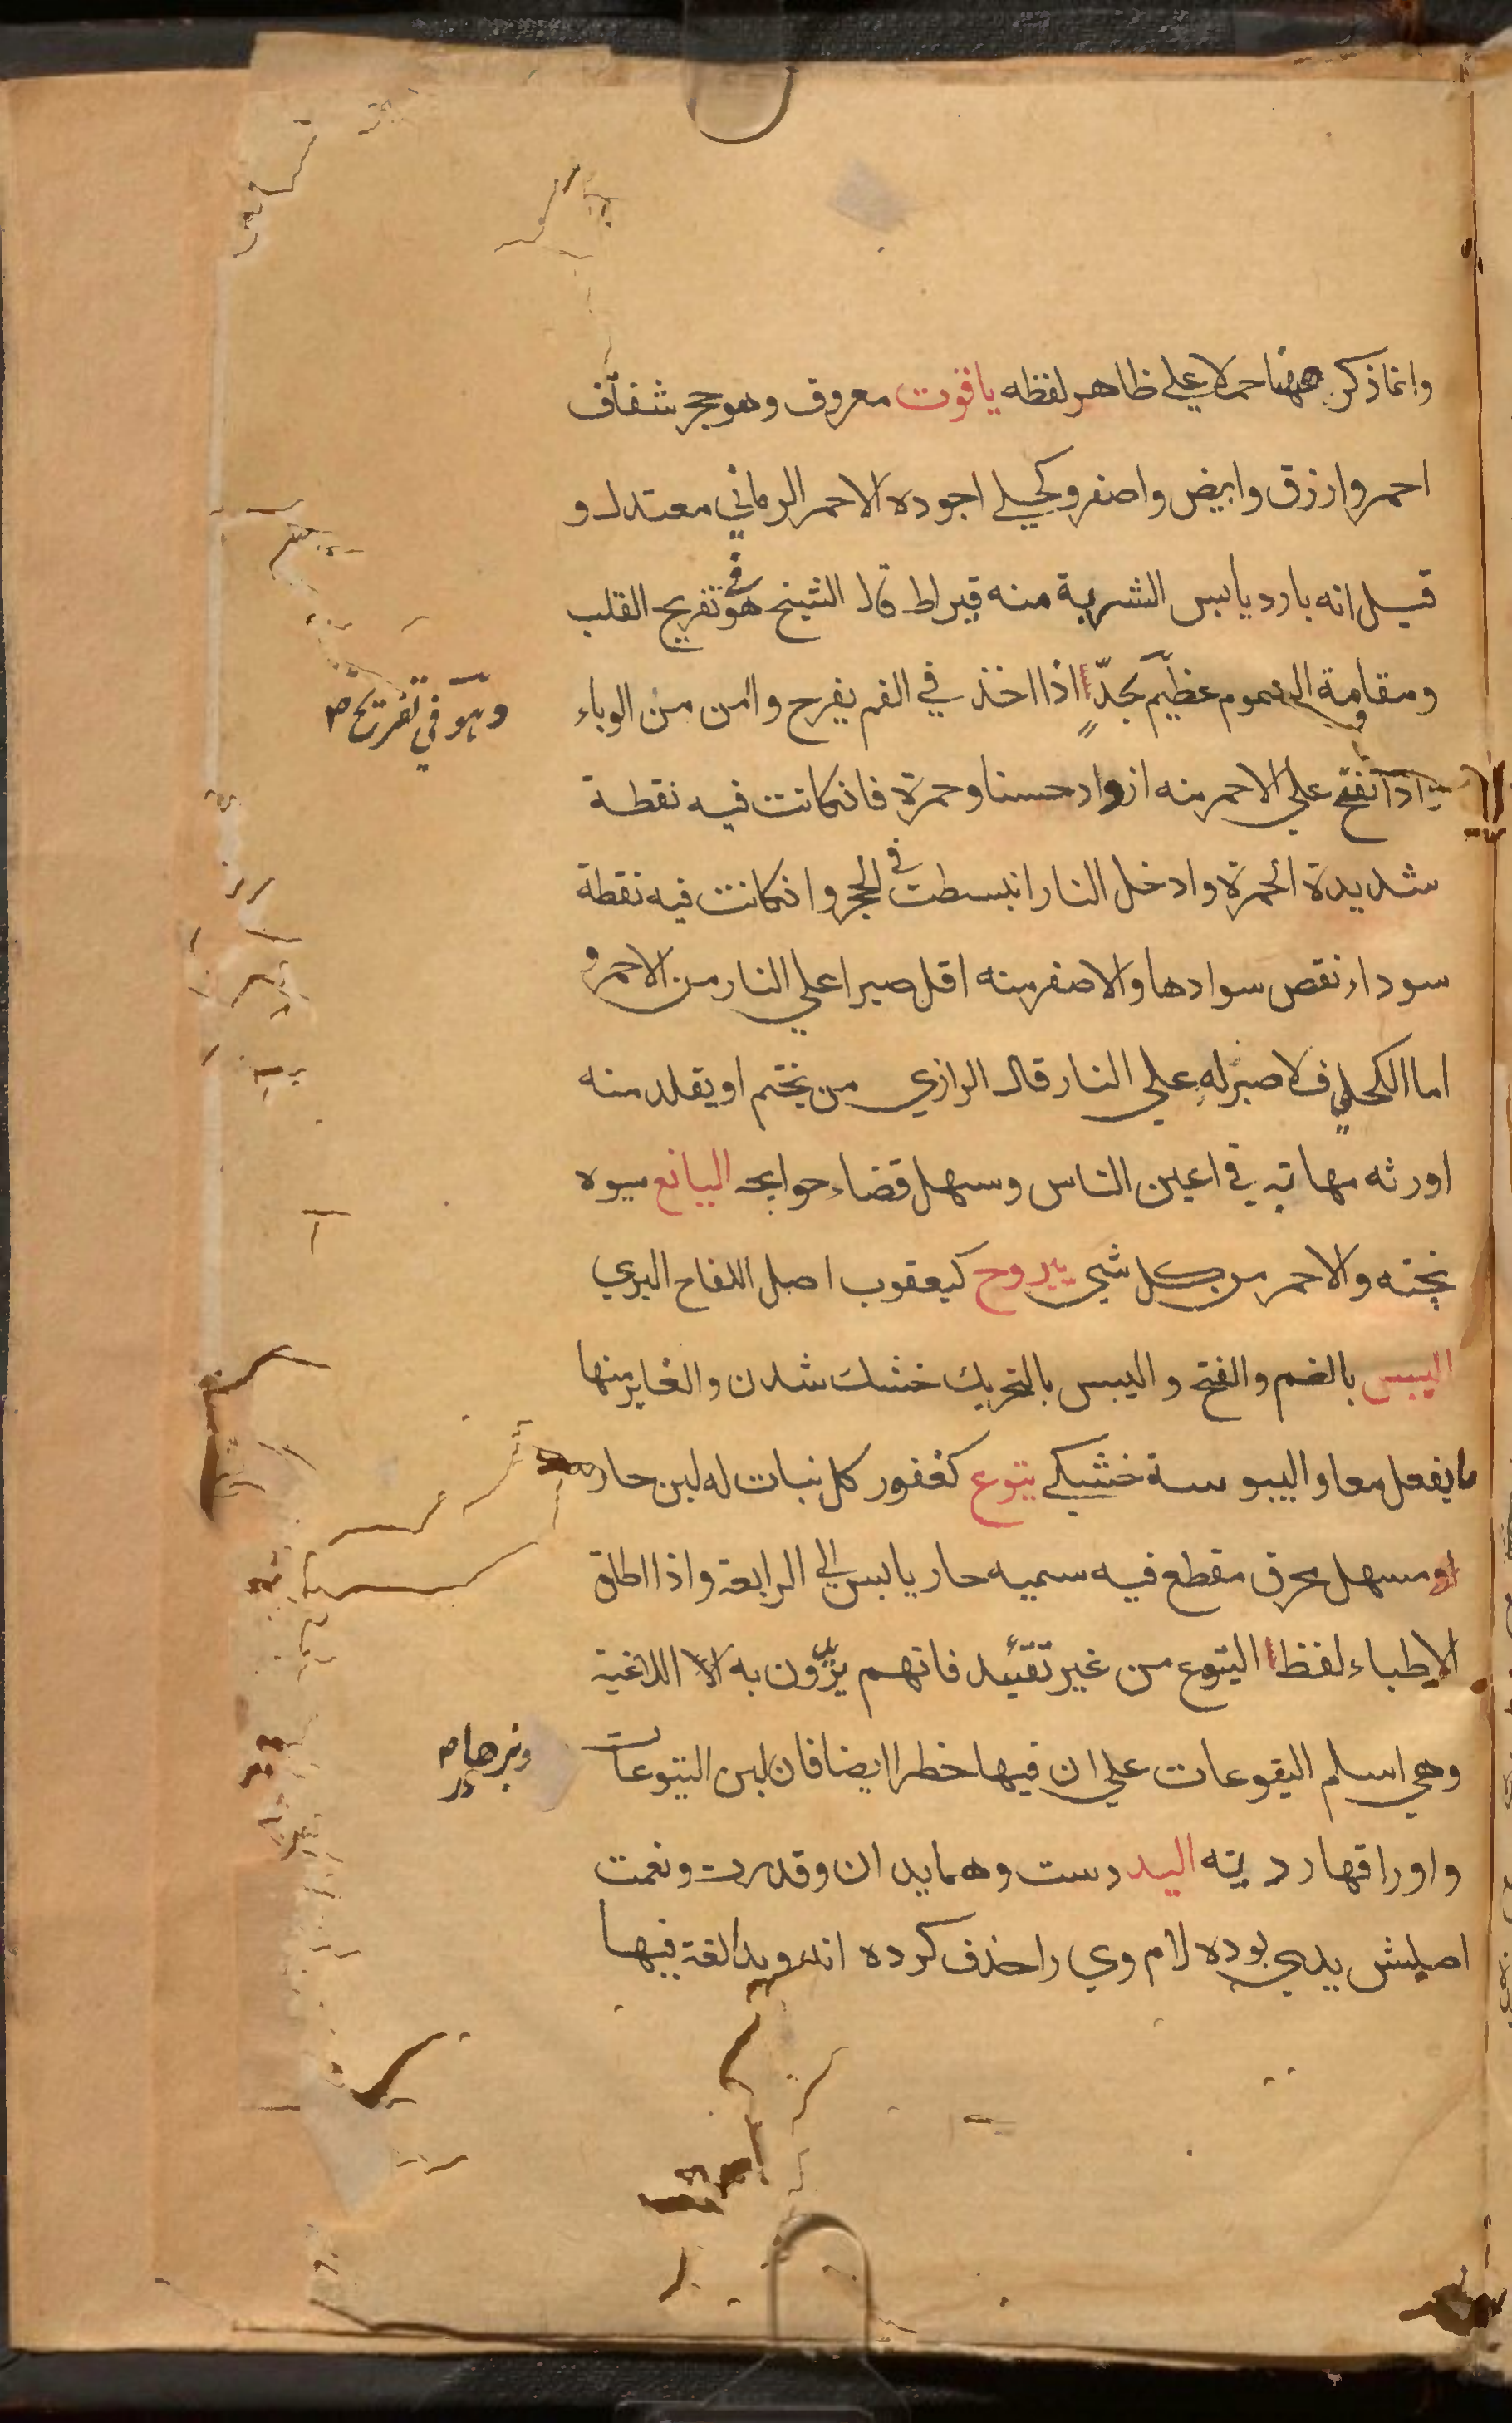 وانما ذكر ههنا حملا علي ظاهر لفظه ياقوت معروف وهو حجر شفاف
احمر وازرق وابيض واصفر وكحيلي اجوده الاحمر الرماني معتدل و
قيل انه بارد يابس الشربة منه قيراط قال الشيخ هو في تفريح القلب
ومقامة السموم عظيم بجدّ اذا اخذ في الفم يفرح وامن من الوباء
وهو في تفريح صح
اذا نفخ علي الاحمر منه ازداد حسنا وحمرة فانكانت فيه نقطة
شديدة الحمرة وادخل النار انبسطت في الحجر وانكانت فيه نقطة
سوداء نقص سوادها والاصفر منه اقل صبرا علي النار من الاحمر و
اما الكحلي فلا صبر له علي النار قال الرازي من تختم او يقلد منه
اورثه مهابة في اعين الناس وسهل قضاء حوايجه اليانع ميوه
پخته والاحمر من كل شي يبروح كيعقوب اصل اللفاح البري
اليبس بالضم والفتح واليبس بالتحريك خشك شدن والغابر منها
ما يفعل معا واليبوسة خشكي يتوع كغفور كل نبات له لبن حار
او مسهل محرق مقطع فيه سميه حار يابس الي الرابعة واذا اطلق
الاطباء لفظ اليتوع من غير تقئيد فانهم يريدون به الا اللاغية
وهي اسلم اليتوعات علي ان فيها خطرا ايضا فان لبن اليتوعات
وبزرها صح
واوراقها رديئه اليد دست وهما يدان وقدرت ونعمت
اصليش يدي بوده لام وي را حذف كرده اند ويد الغة فيها